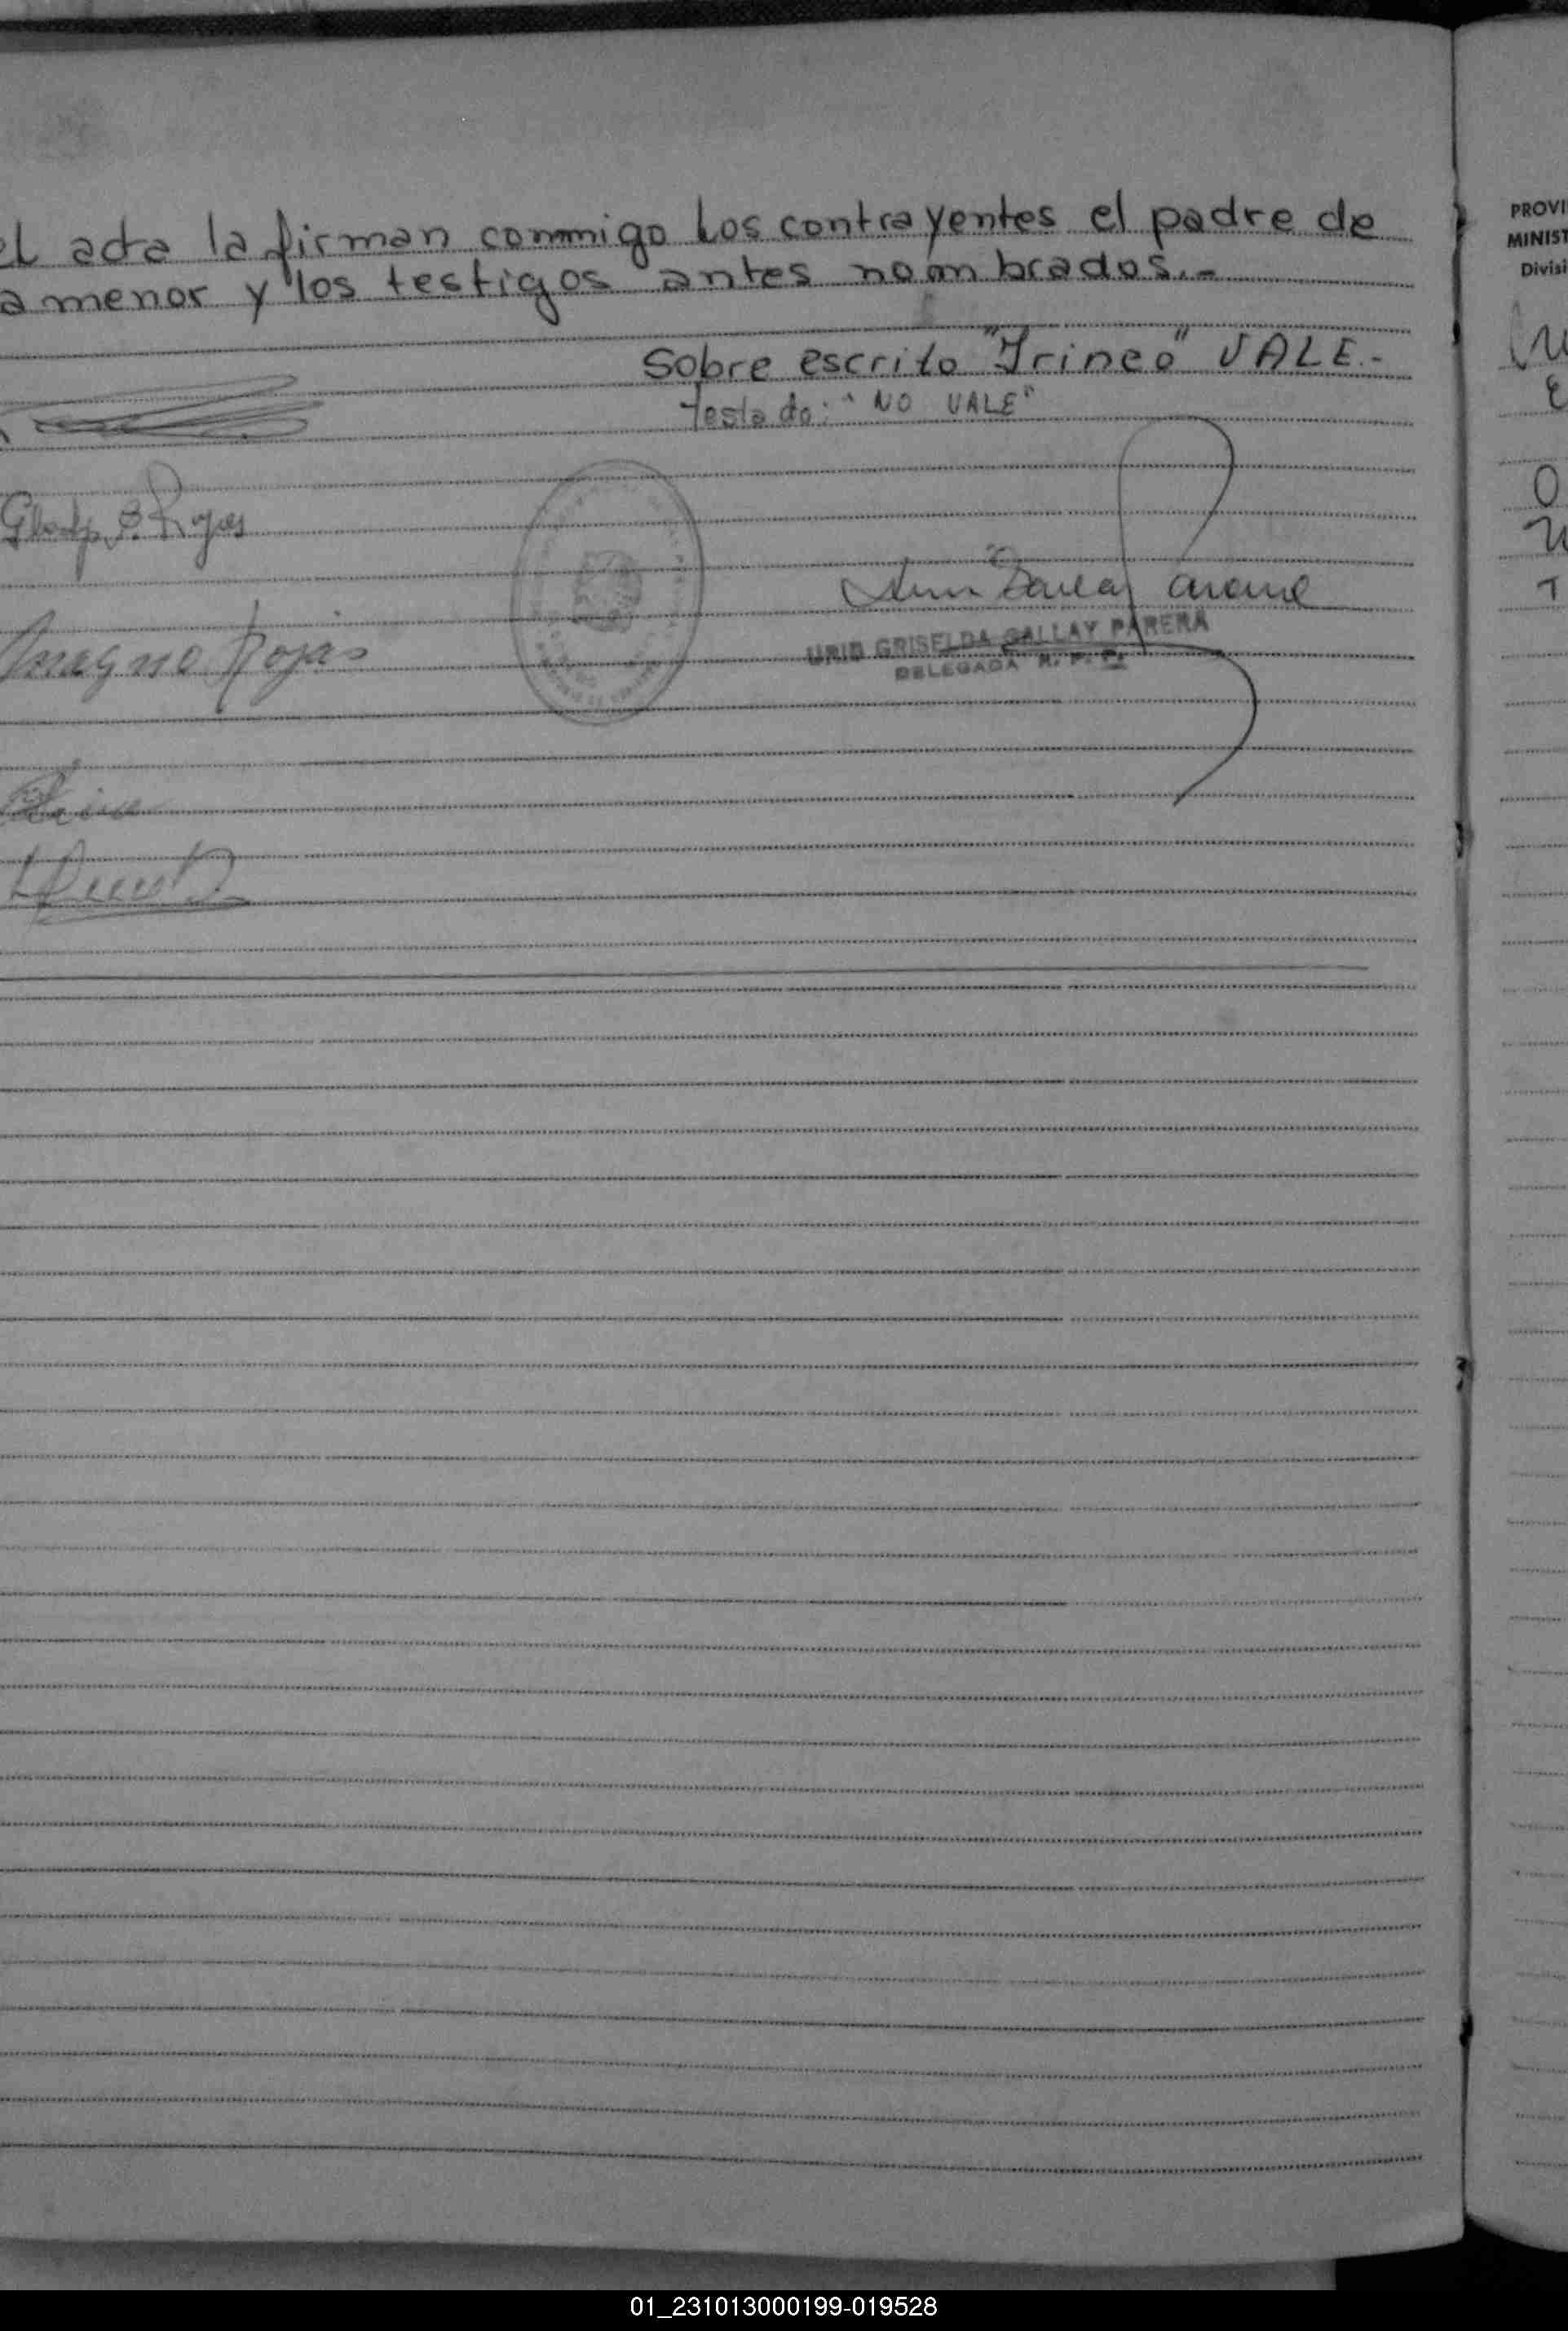 el acta la firman conmigo Los contrayentes el padre de
a menor y los testigos antes nombrados.-
Sobre escrito "Irineo" VALE.-
Testado: "NO VALE"
Gladys B. Rojas
Magno Rojas
GRISELDA GALLAY PARERA
DELEGADA R. P. P.
PROVI
MINIST
Divisi
01_231013000199-019528